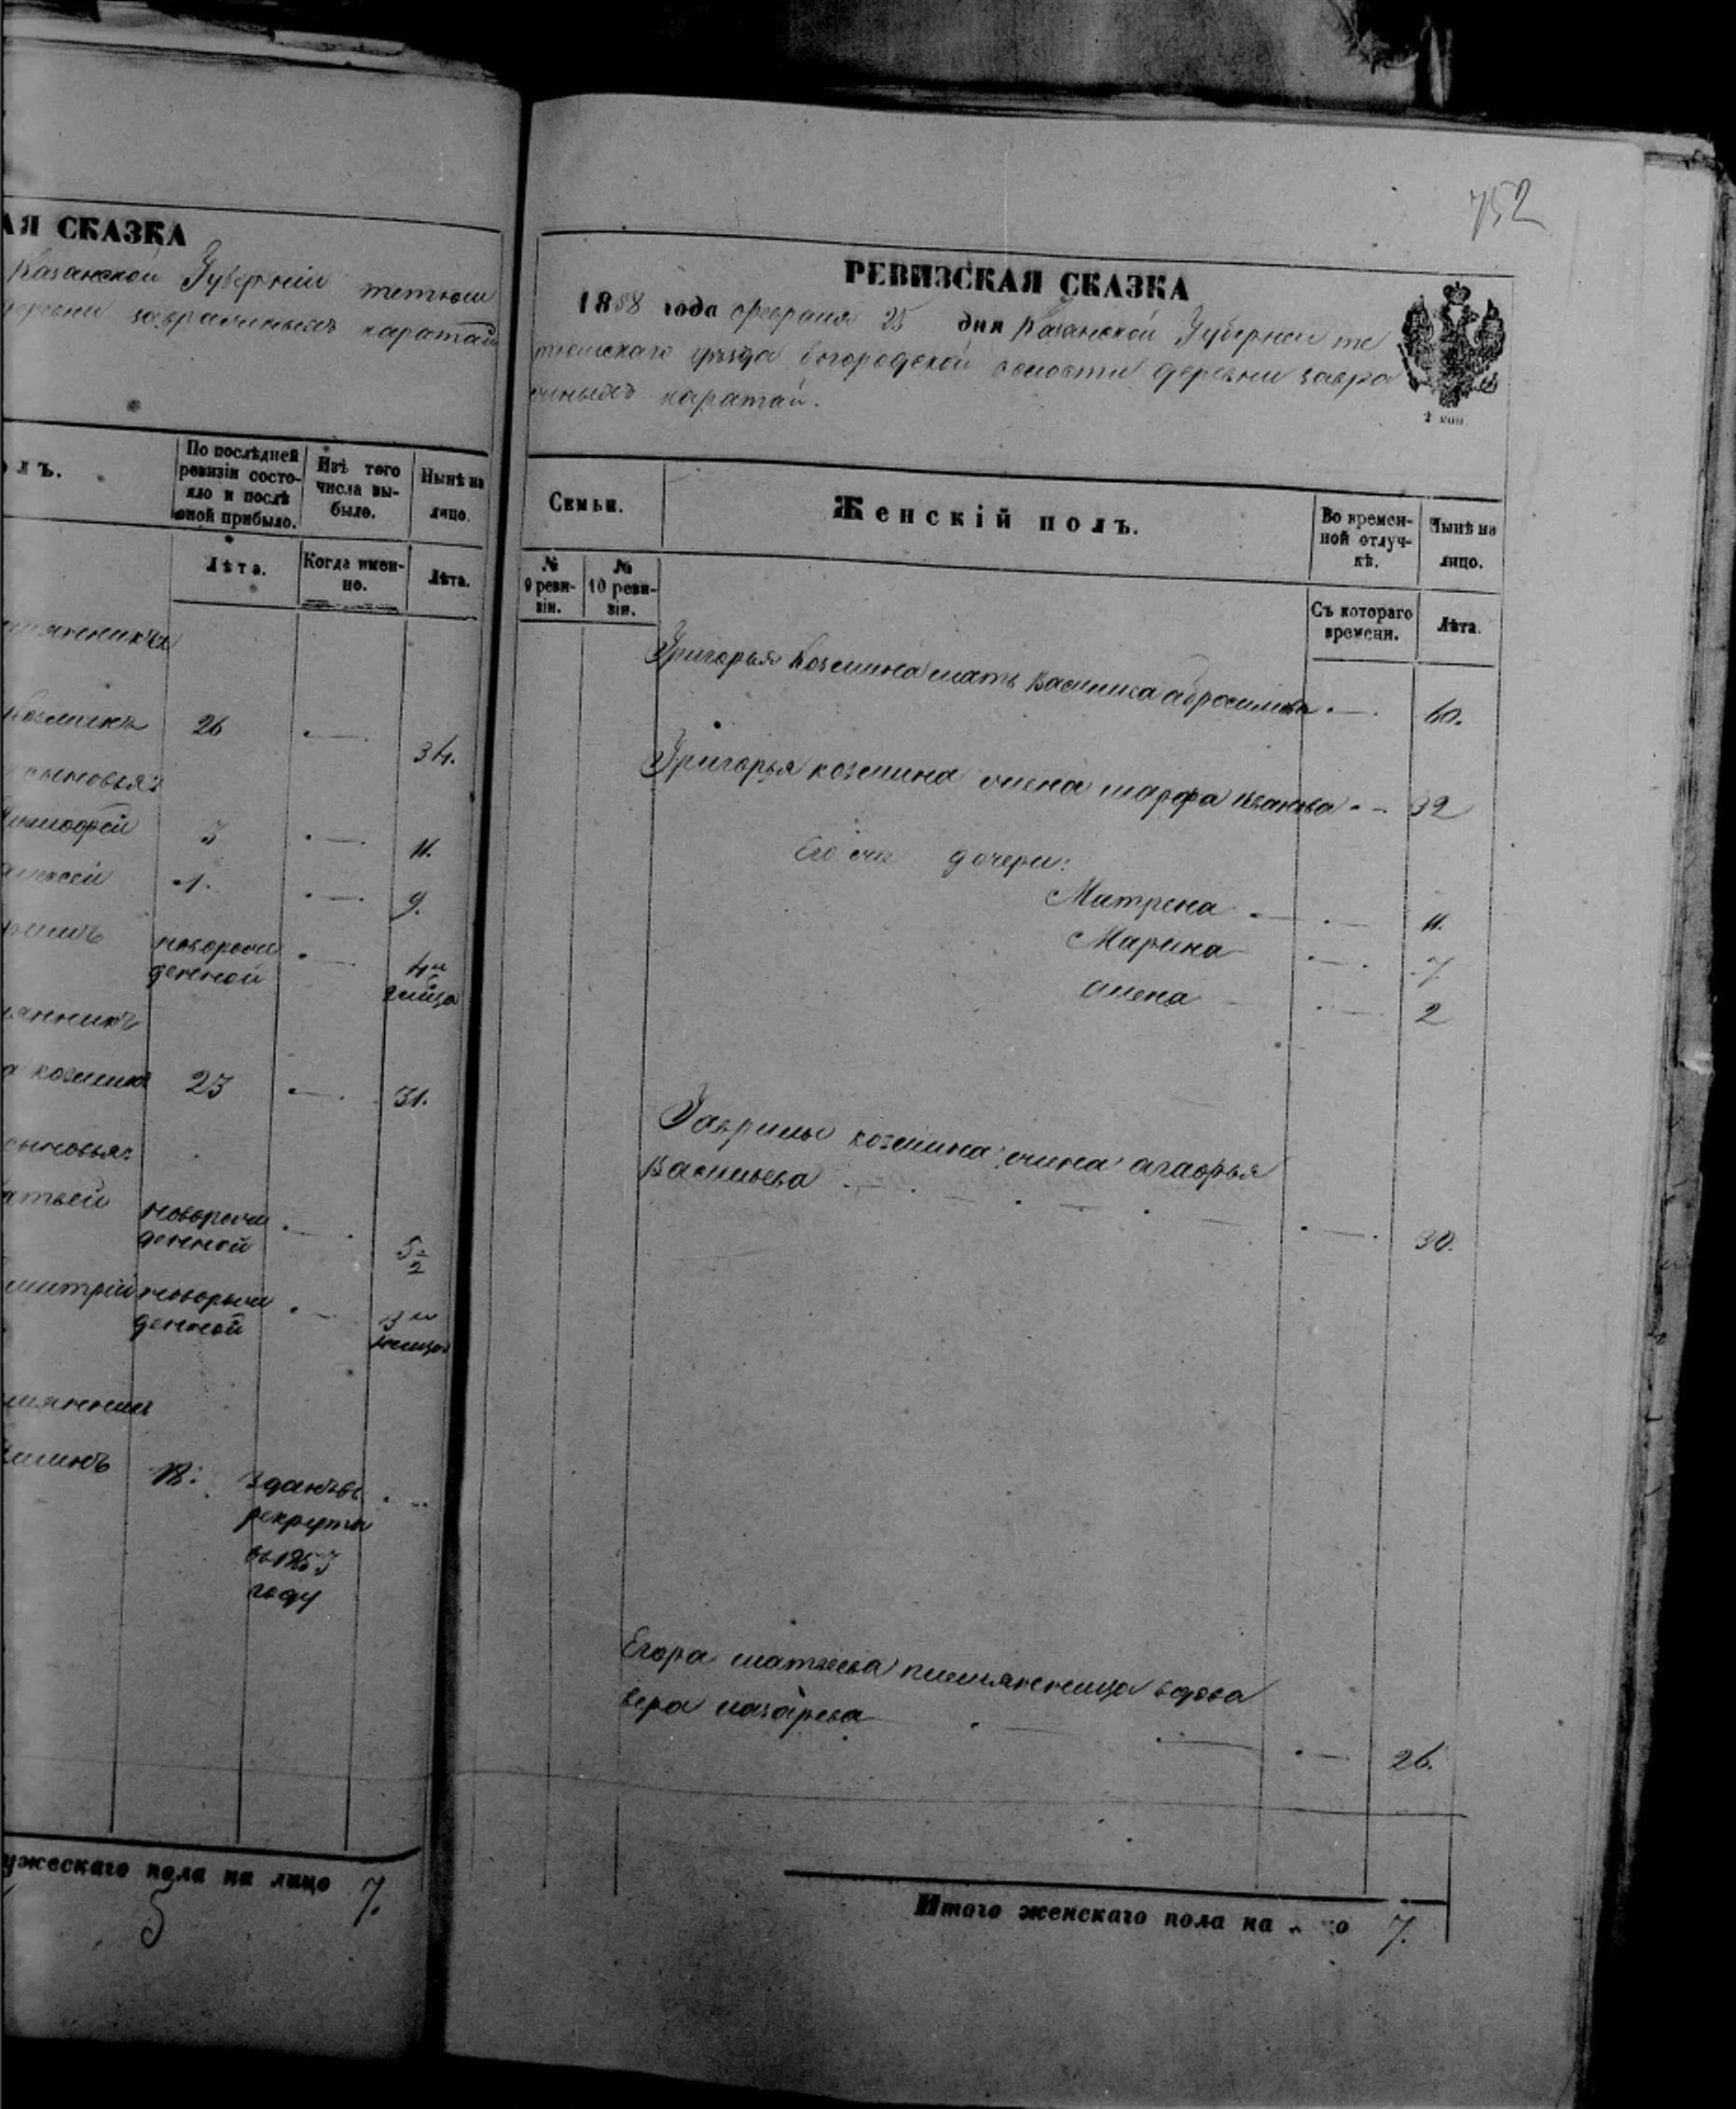 АЯ СКАЗКА
Казанской Губернiи тетюш
деревни завражныхъ каратай
олъ.
По послѣдней ревизiи состо-
яло и послѣ
оной прибыло.
Изъ того
числа вы-
было.
Нынѣ на
лицо.
Лѣта.
Когда имен-
но.
Лѣта.
Козминъ 26 34.
сыновья:
Тимофей 3 11.
алексей 1. 9.
новорож
денной
4
янникъ
а козмина 23 31.
сыновья:
новорож
денной
5
2
митрiй новорож
денной
3
18. Зданъ въ
рекруты
въ 1853
году
ужескаго пола на лицо 7.
5
752
РЕВИЗСКАЯ СКАЗКА
1858 года февраля 25 дня Казанской Губернiи те
тюшскаго уѣзда богородской волости деревни завра
жныхъ каратай.
2 коп.
Семьи.
Женскiй полъ.
Во времен-
ной отлуч-
кѣ.
Нынѣ на
лицо.
№
9 реви-
зiи.
№
10 реви-
зiи.
Съ котораго
времени.
Лѣта.
Григорья Козмина мать василиса абросимова 60.
Григорья козмина жена марфа иванова 32
Его же дочери:
Матрена 11.
Марина 7.
алена 2
Гаврилы козмина жена агафья
васильева 30.
Егора матвева племянница вдова
вера назарева 26.
Итого женскаго пола на лицо 7.